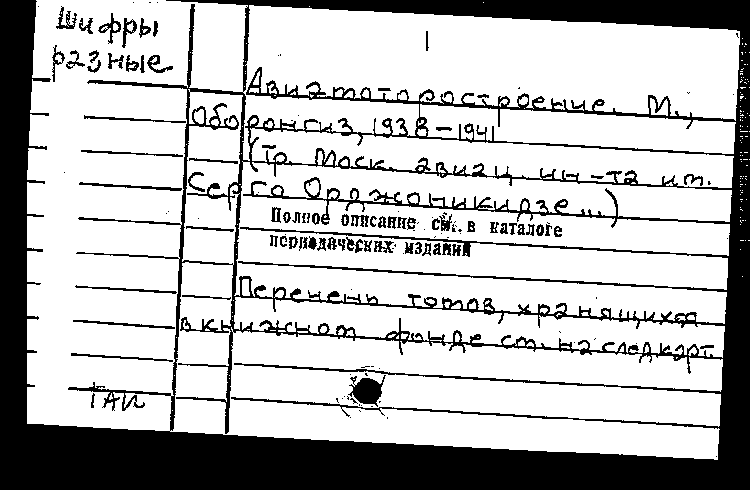 Шифры
разные
Авиамоторостроение. М.,
Оборонгиз, 1938-1941
(Тр. Моск. авиац. ин-та им.
Серго Орджоникидзе...)
Полное описание см. в каталоге
периодических изданий
Перечень томов, хранящихся
в книжном фонде см. на след карт.
ТАИ